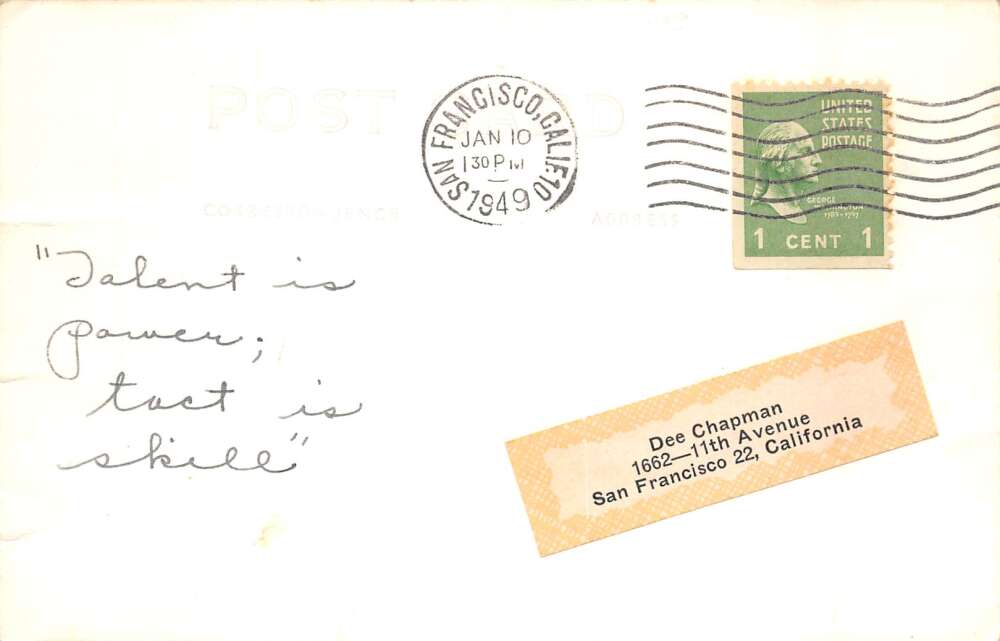 POST CARD
SAN FRANCISCO, CALIF. 10
JAN 10
1 30 PM
1949
UNITED
STATES
POSTAGE
GEORGE
WASHINGTON
1789-1797
1 CENT 1
CORRESPONDENCE
ADDRESS
"Talent is
power;
tact is
skill"
Dee Chapman
1662—11th Avenue
San Francisco 22, California